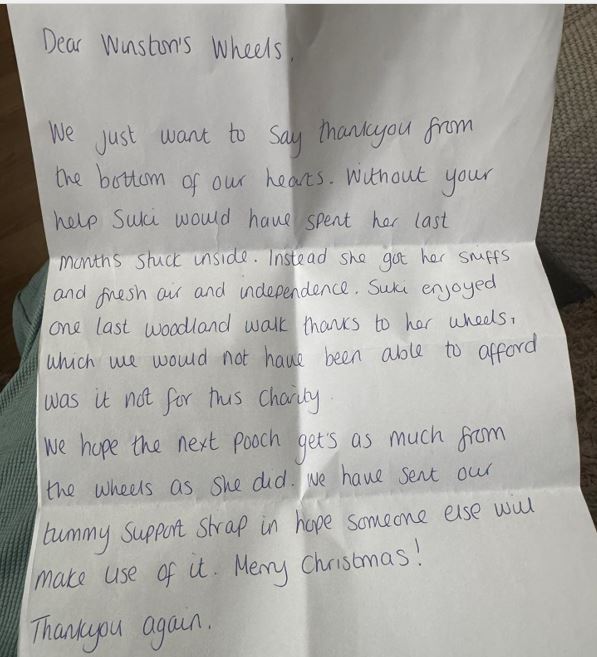 Dear Winston's Wheels,
We just want to say thankyou from
the bottom of our hearts. Without your
help Suki would have spent her last
months stuck inside. Instead she got her sniffs
and fresh air and independence. Suki enjoyed
one last woodland walk thanks to her wheels,
which we would not have been able to afford
was it not for this charity.
We hope the next pooch get's as much from
the wheels as she did. We have sent our
tummy support strap in hope someone else will
make use of it. Merry Christmas!
Thankyou again.